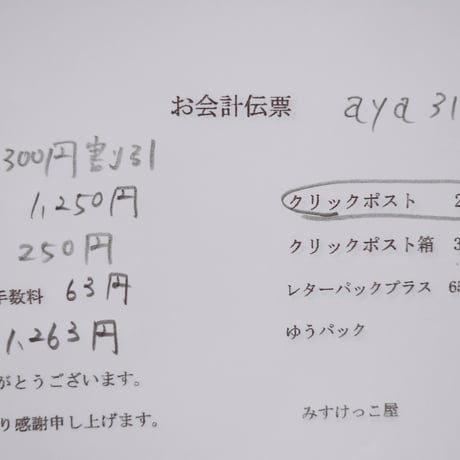 お会計伝票
aya 31
300円割り引
1,250円
250円
手数料 63円
1,263円
がとうございます。
り感謝申し上げます。
クリックポスト 2
クリックポスト箱 3
レターパックプラス 65
ゆうパック
みすけっこ屋